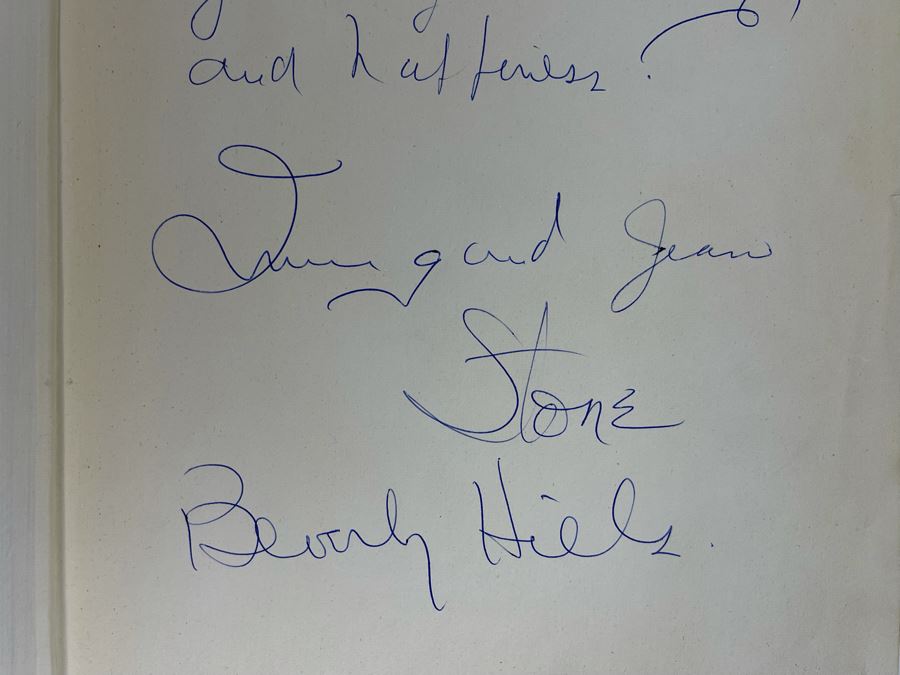 and happiness.
Irving and Jean
Stone
Beverly Hills.